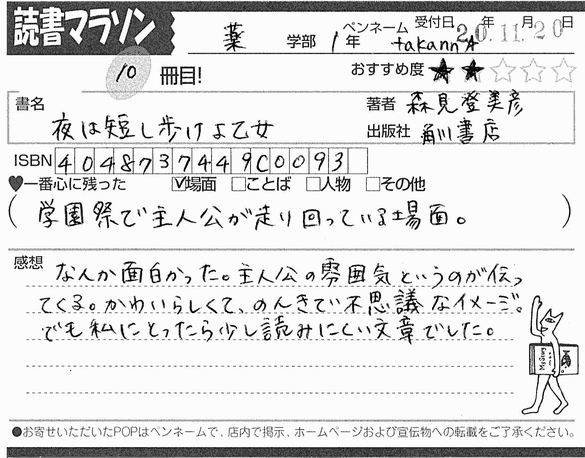 読書マラソン
薬 学部 1年 ペンネーム takann☆ 受付日 20年 11月 20日
10 冊目! おすすめ度 ★★☆☆☆
書名 夜は短し歩けよ乙女
著者 森見登美彦
出版社 角川書店
ISBN 4048737449C0093
♥一番心に残った ☑場面 □ことば □人物 □その他
(学園祭で主人公が走り回っている場面。)
感想
なんか面白かった。主人公の雰囲気というのが伝っ
てくる。かわいらしくて、のんきで不思議なイメージ。
でも私にとったら少し読みにくい文章でした。
Mystery
●お寄せいただいたPOPはペンネームで、店内で掲示、ホームページおよび宣伝物への転載をご了承ください。